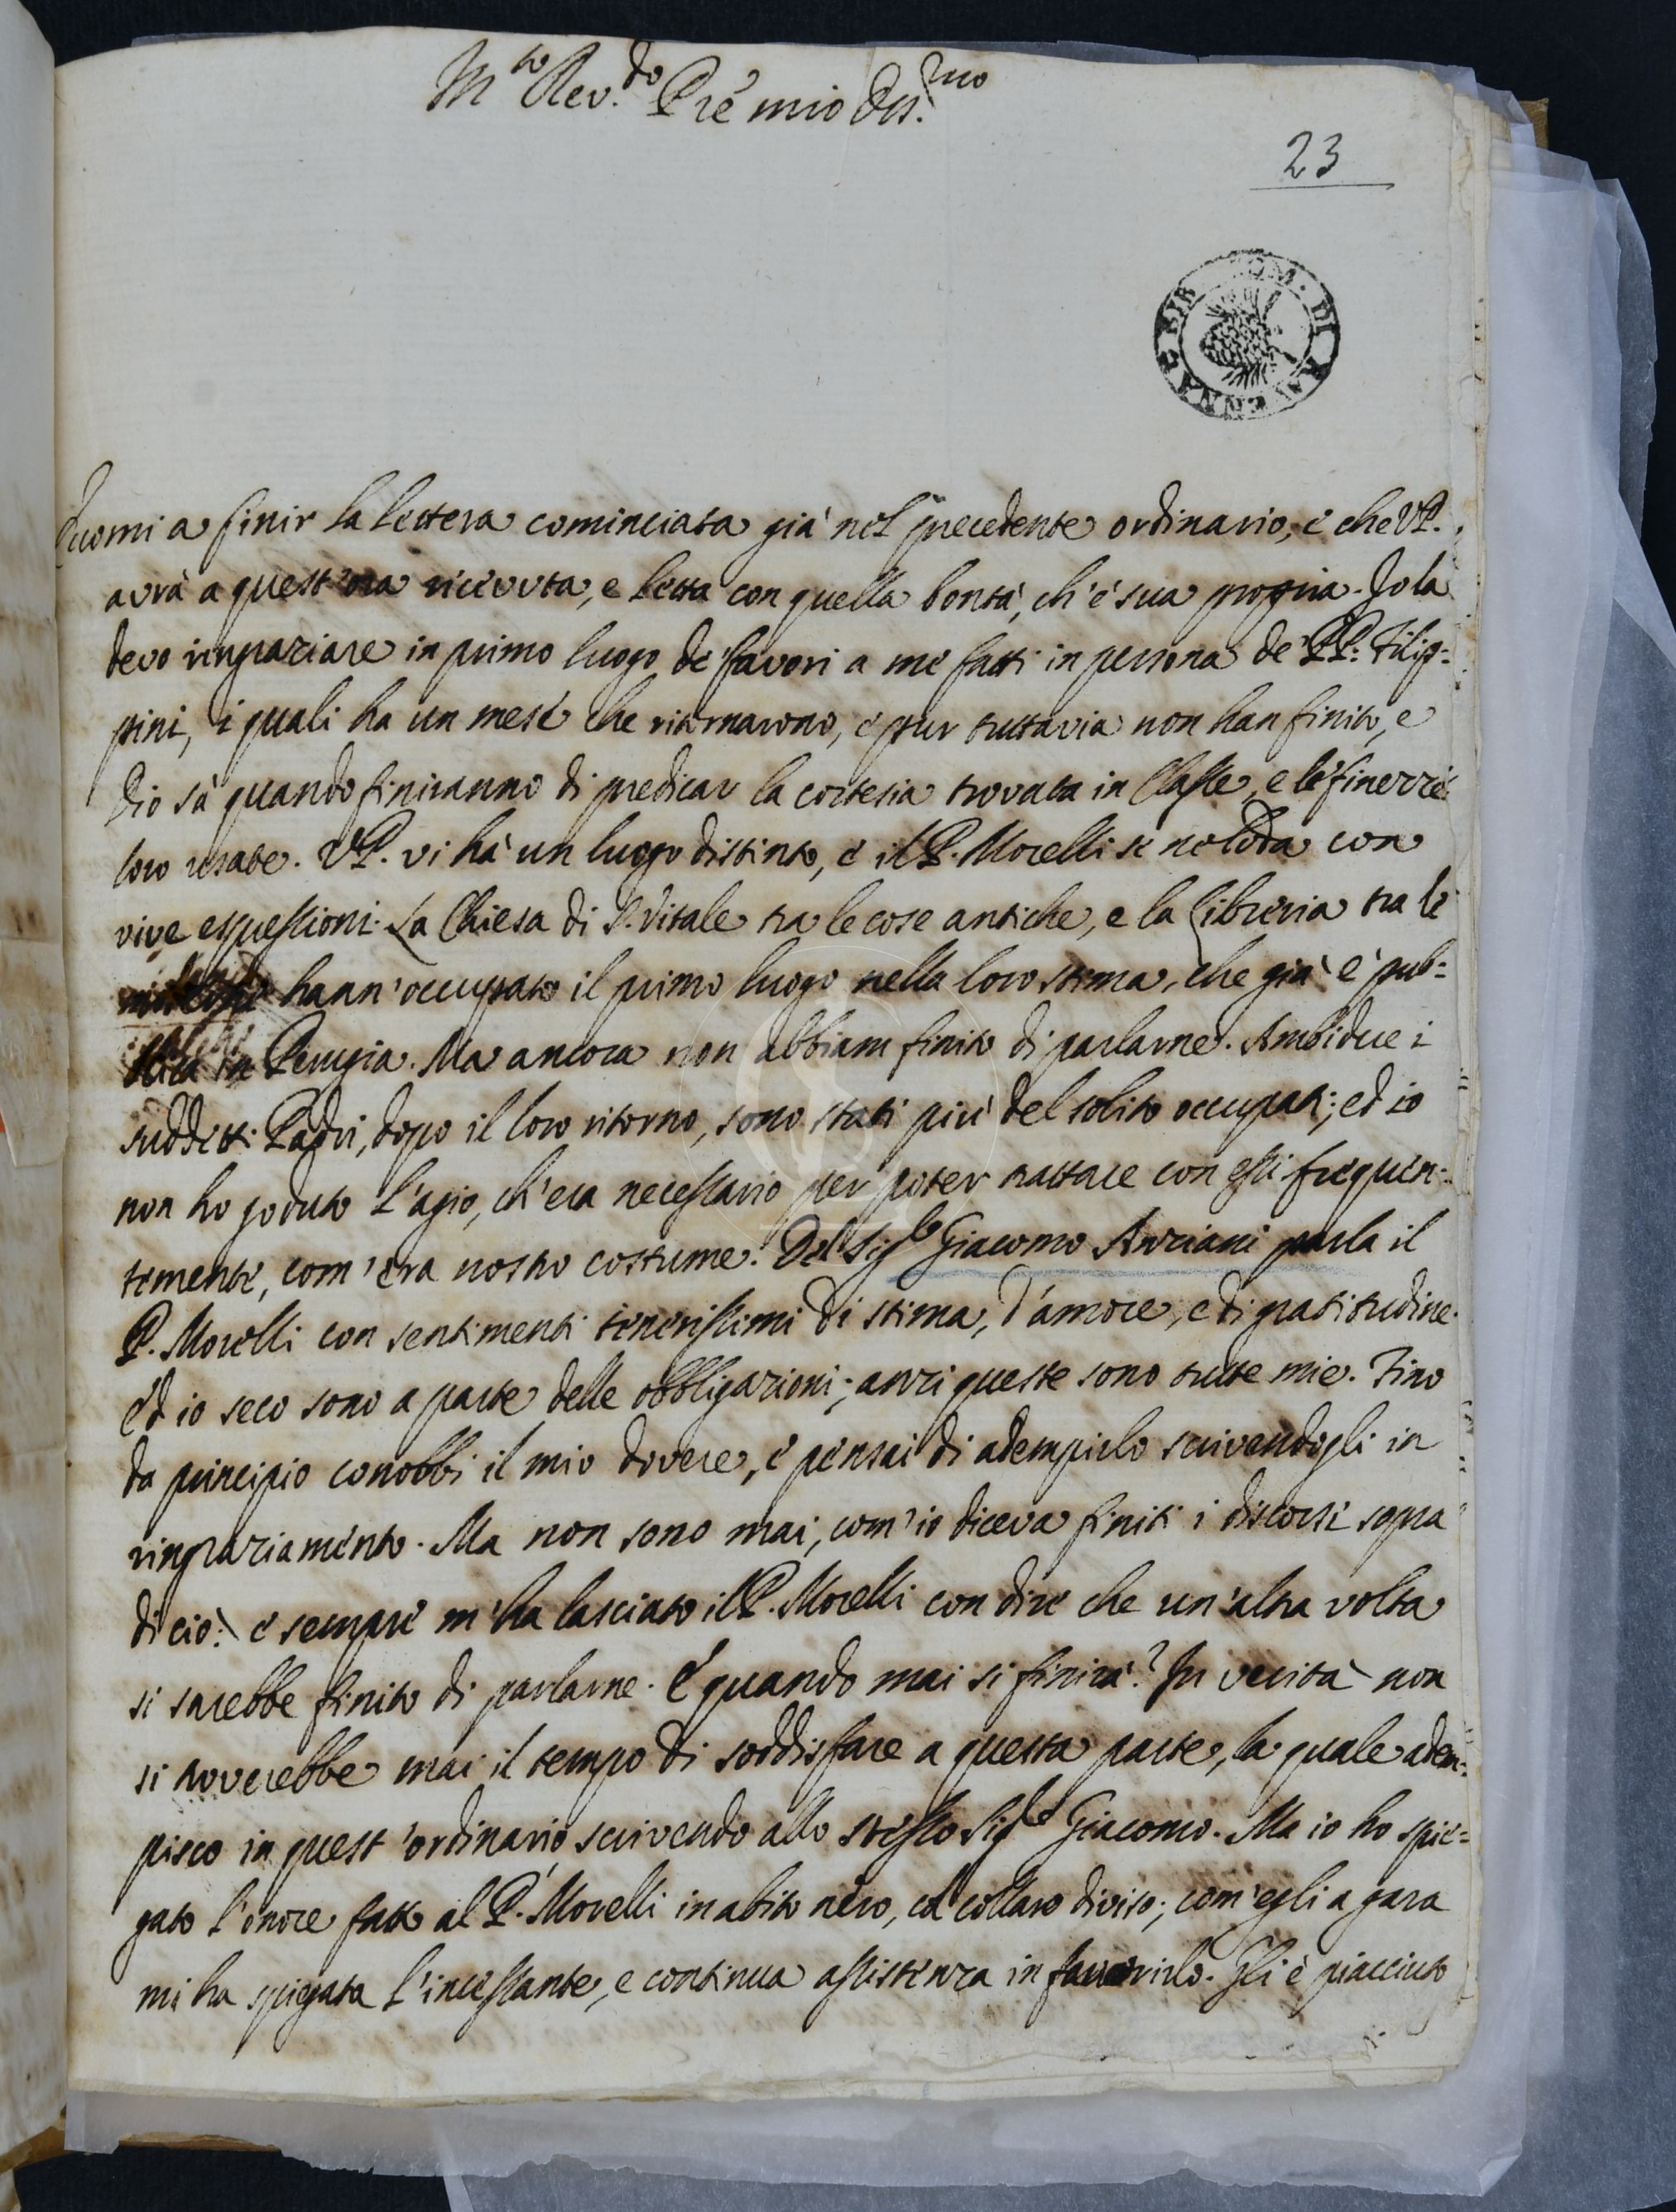 M.to Rev.do Pre mio Oss.mo
23
BIB. COM. DI RAVENNA
Eccomi a finir la lettera cominciata già nel precedente ordinario, e che V.P.
avrà a quest'ora ricevuta, e letta con quella bontà, ch'è sua propria. Io la
devo ringraziare in primo luogo de' favori a me fatti in persona de' PP: Filip=
pini, i quali ha un mese che ritornarono, e pur tuttavia non han finito, e
Dio sà quando finiranno di predicar la cortesia trovata in Classe, e le finezze
loro usate. V.P. vi hà un luogo distinto, e il P. Morelli se ne loda con
vive espressioni. La Chiesa di S. Vitale tra le cose antiche, e la Libreria tra le
hann'occupato il primo luogo nella loro stima, che già è pub=
blica in Perugia. Ma ancora non abbiam finito di parlarne. Ambidue i
suddetti Padri, dopo il loro ritorno, sono stati più del solito occupati; ed io
non ho goduto l'agio, ch'era necessario per poter trattare con essi frequen=
temente, com'era nostro costume. Del Sig.re Giacomo Anziani parla il
P. Morelli con sentimenti tenerissimi di stima, d'amore, e di gratitudine.
Ed io seco sono a parte delle obbligazioni; anzi queste sono tutte mie. Fino
da principio conobbi il mio dovere, e pensai di adempirlo scrivendogli in
ringraziamento. Ma non sono mai, com'io diceva finiti i discorsi sopra
di ciò: e sempre m'ha lasciato il P. Morelli con dire che un'altra volta
si sarebbe finito di parlarne. E quando mai si finirà? In verità non
si troverebbe mai il tempo di soddisfare a questa parte, la quale adem=
pisco in quest'ordinario scrivendo allo stesso Sig.re Giacomo. Ma io ho spie=
gato l'onore fatto al P. Morelli in abito nero, col collaro diviso; com'egli a gara
mi ha spiegata l'incessante, e continua assistenza in favorirlo. Gli è piacciuto